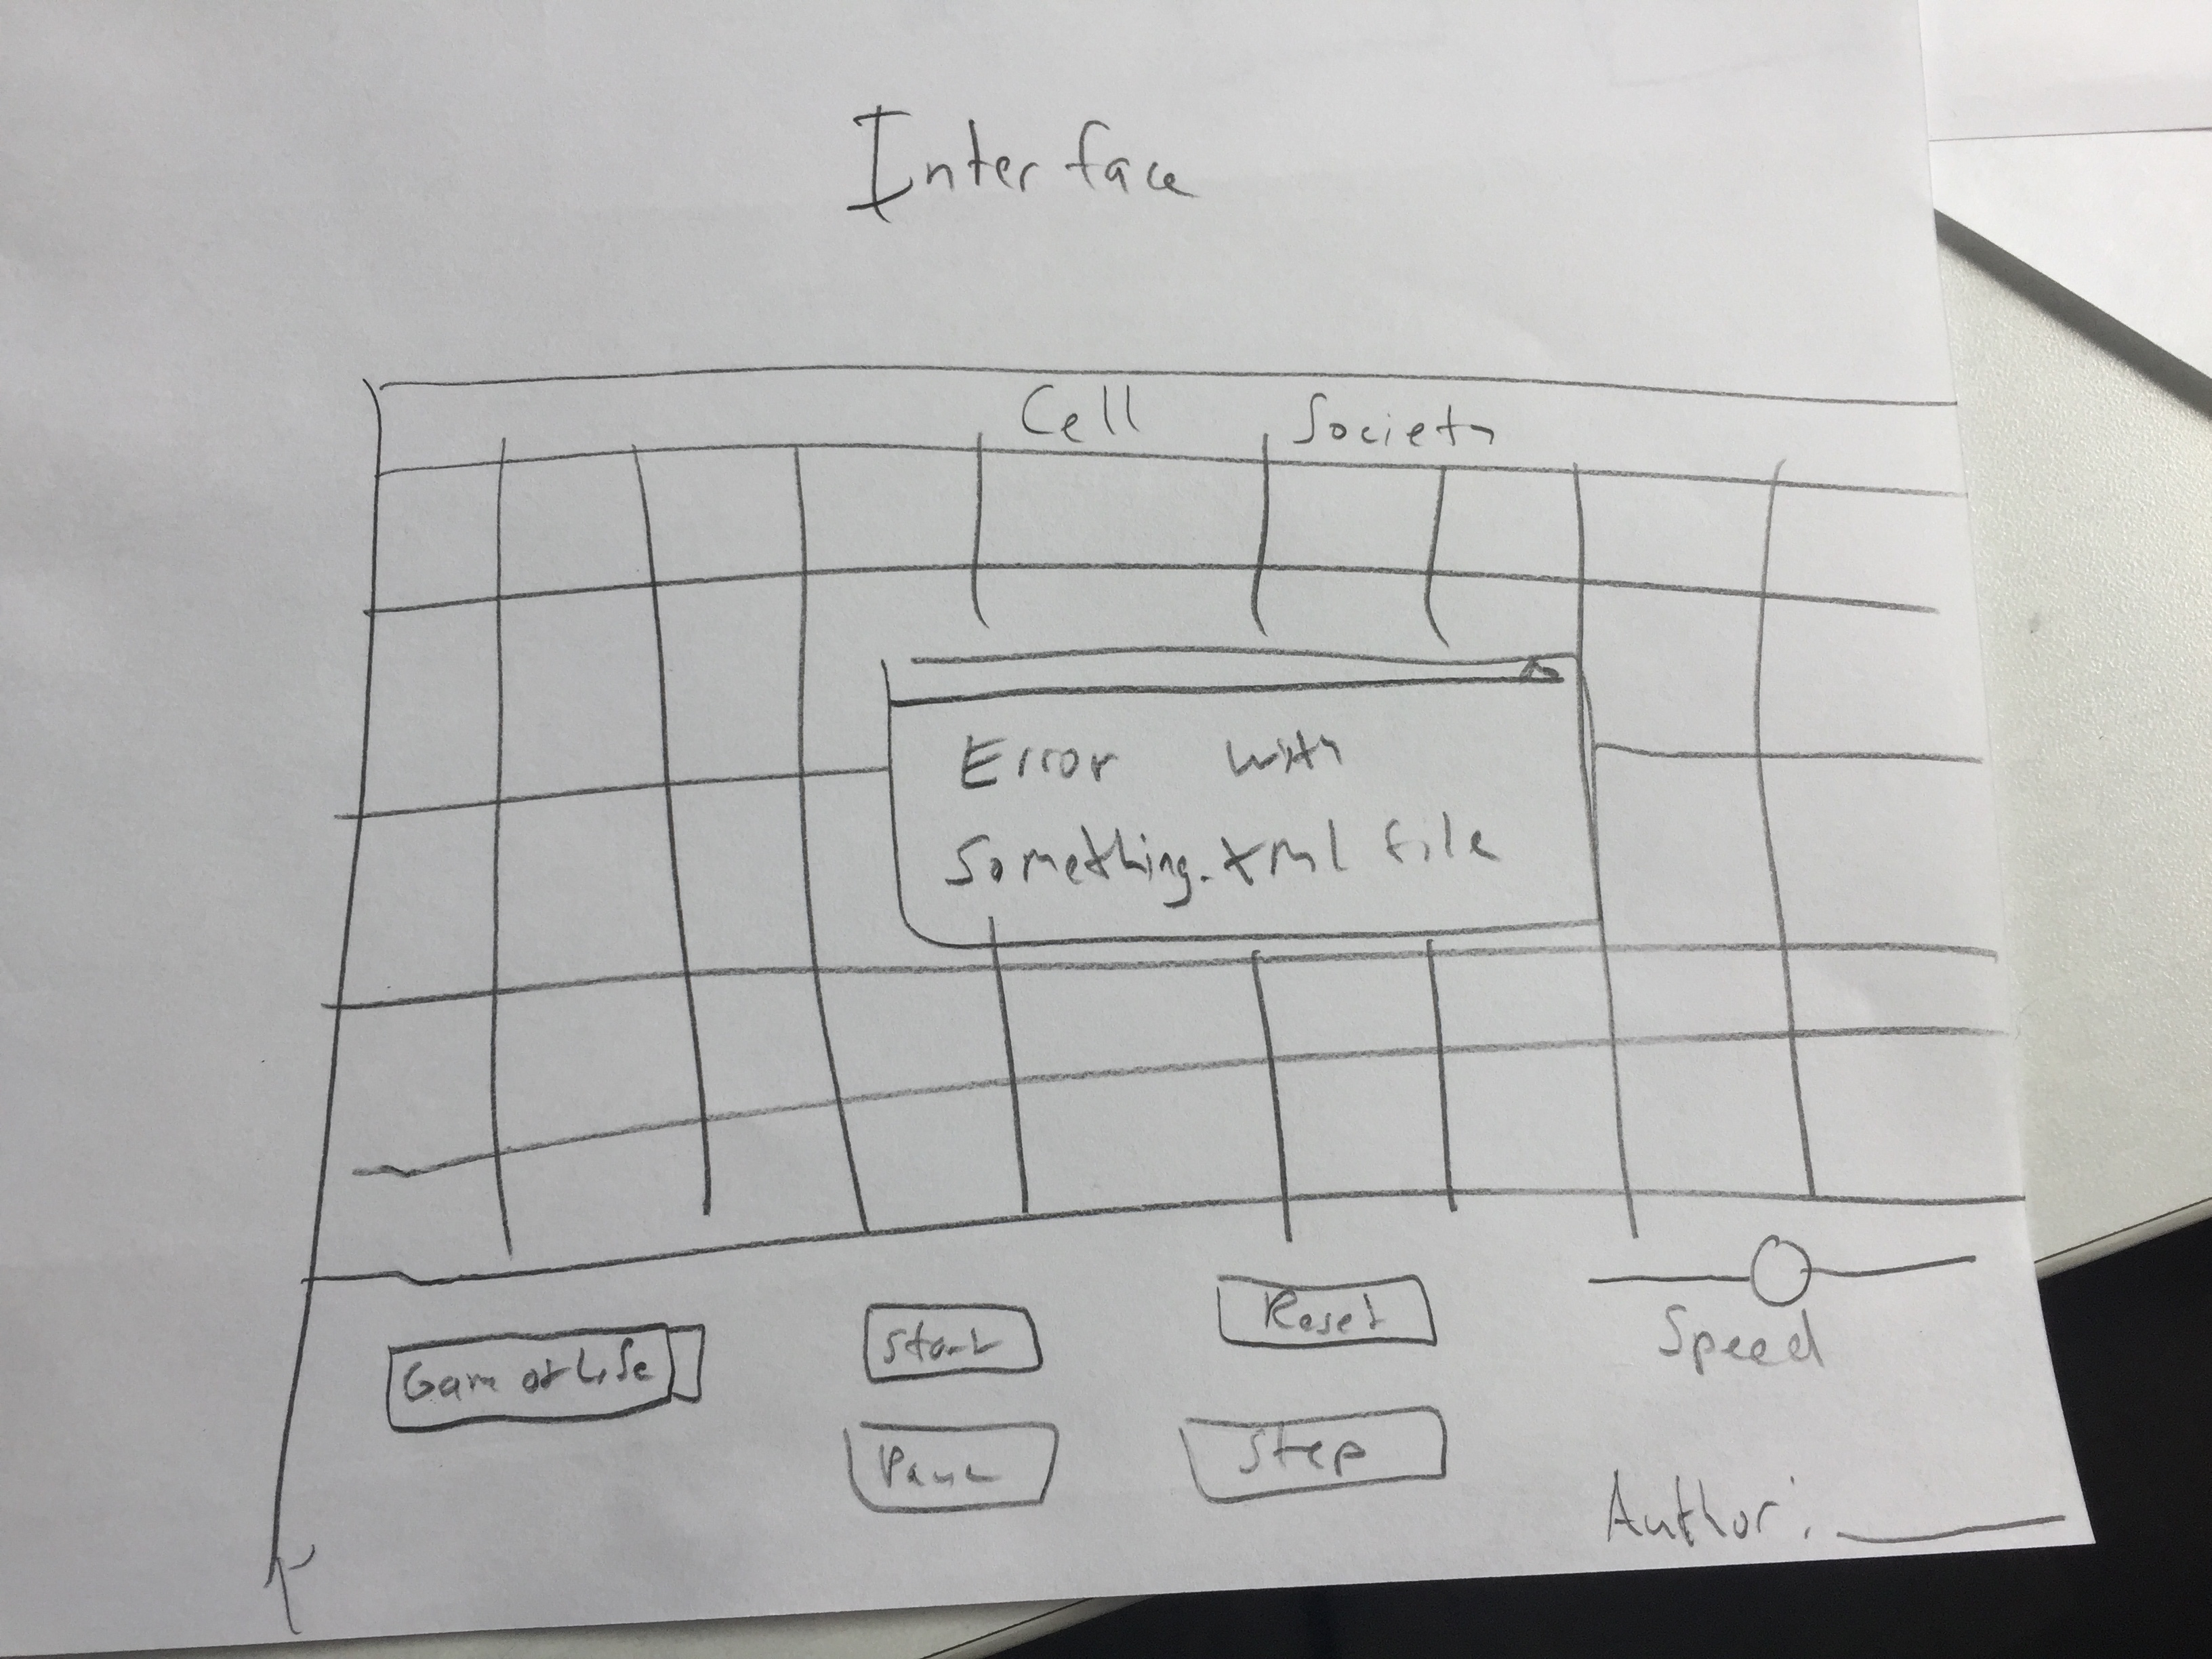 Interface
Cell Society
Error with
Something.xml file
Game of Life
Start
Reset
Speed
Pause
Step
Author: